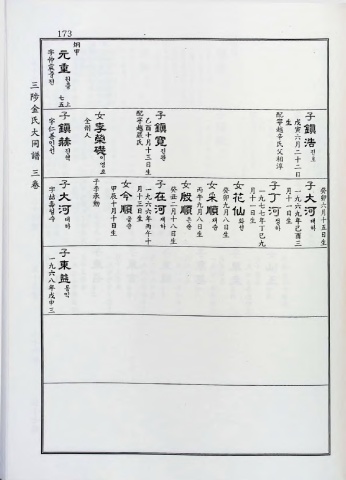 173
三陟金氏大同譜 三卷
炯甲
元重 원중
七五 上
字仲晸 중진
子 鎭浩 진호
戊寅六月二十二日
生
配寧越辛氏父相淳
子 鎭寬 진관
乙酉十月十三日生
配寧越嚴氏
女 李榮礎 이영초
全州人
子 鎭赫 진혁
字仁善 인선
癸卯六月十五日生
子 大河 대하
一九六九年己酉三
月十一日生
子 丁河 정하
一九七七年丁巳九
月十一日生
女 花仙 화선
癸卯九月八日生
女 采順 채순
丙午九月八日生
女 殷順 은순
癸丑二月十八日生
子 在河 재하
一九六六年丙午十
月十三日生
女 今順 금순
甲辰十月十日生
子 李承勳
子 大河 대하
字喆壽 철수
子 東益 동익
一九六八年戊申三